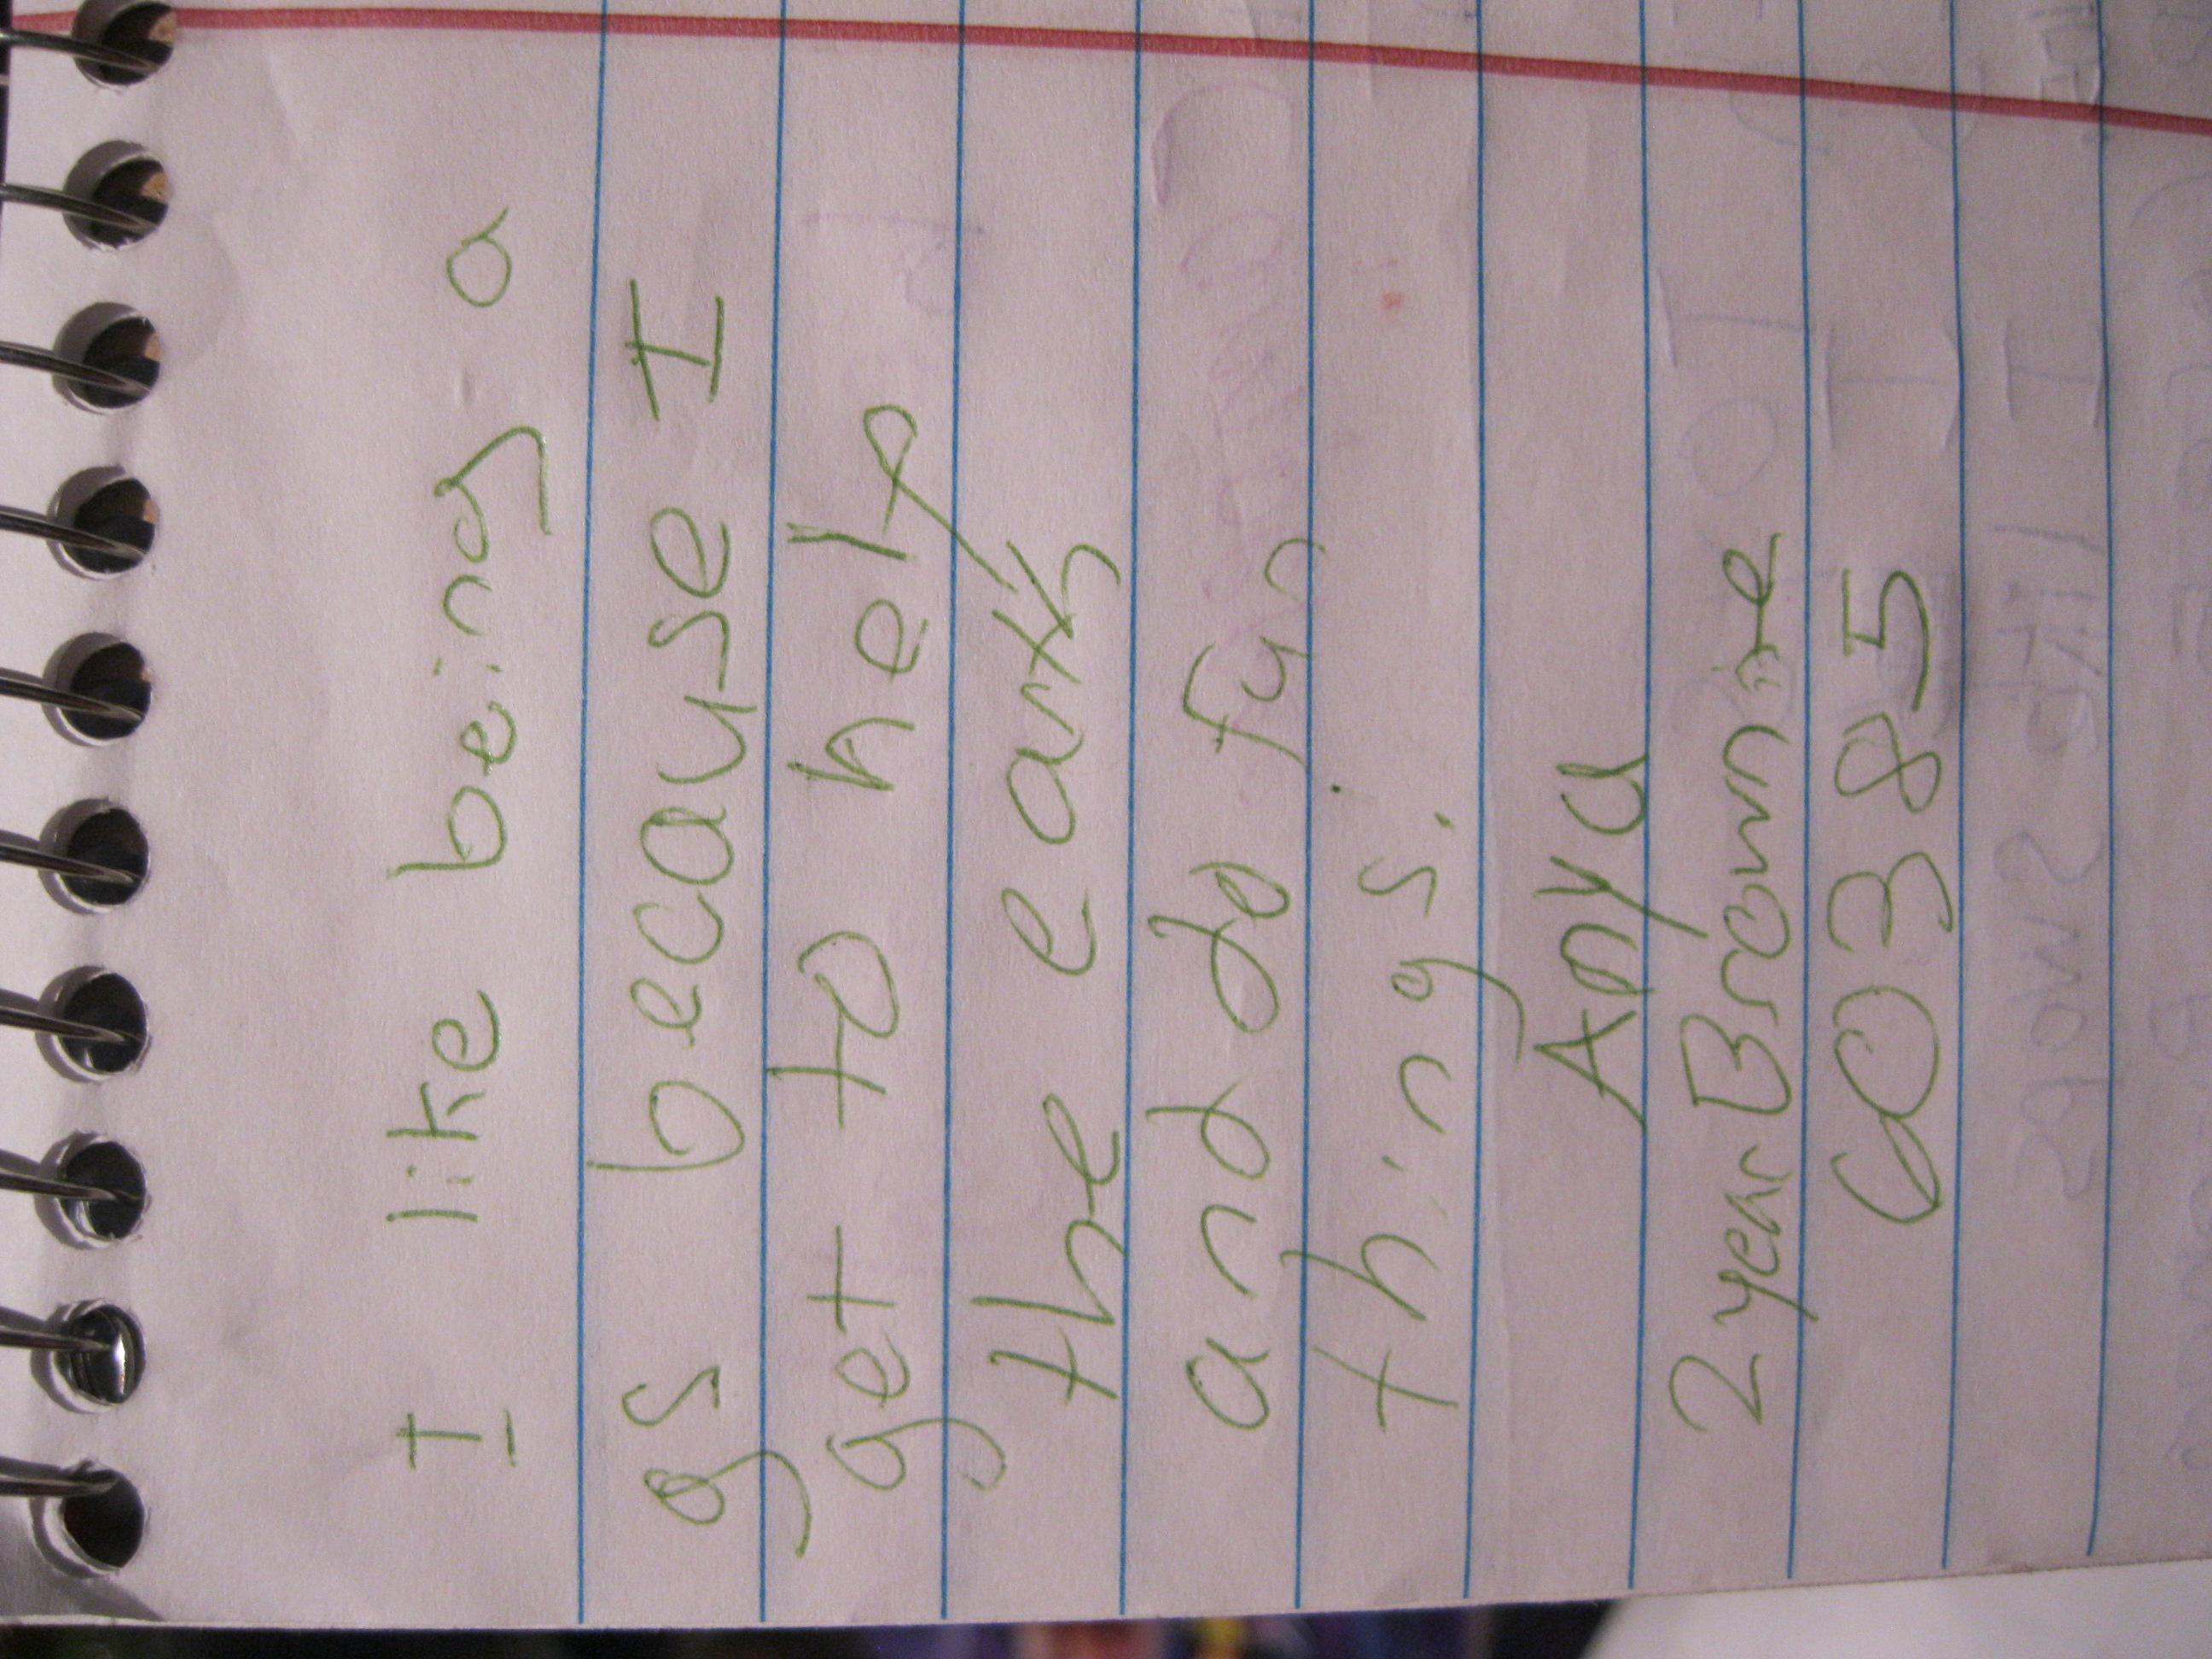 I like being a
gs because I
get to help
the earth
and do fun
things.
Anya
2 year Brownie
60385